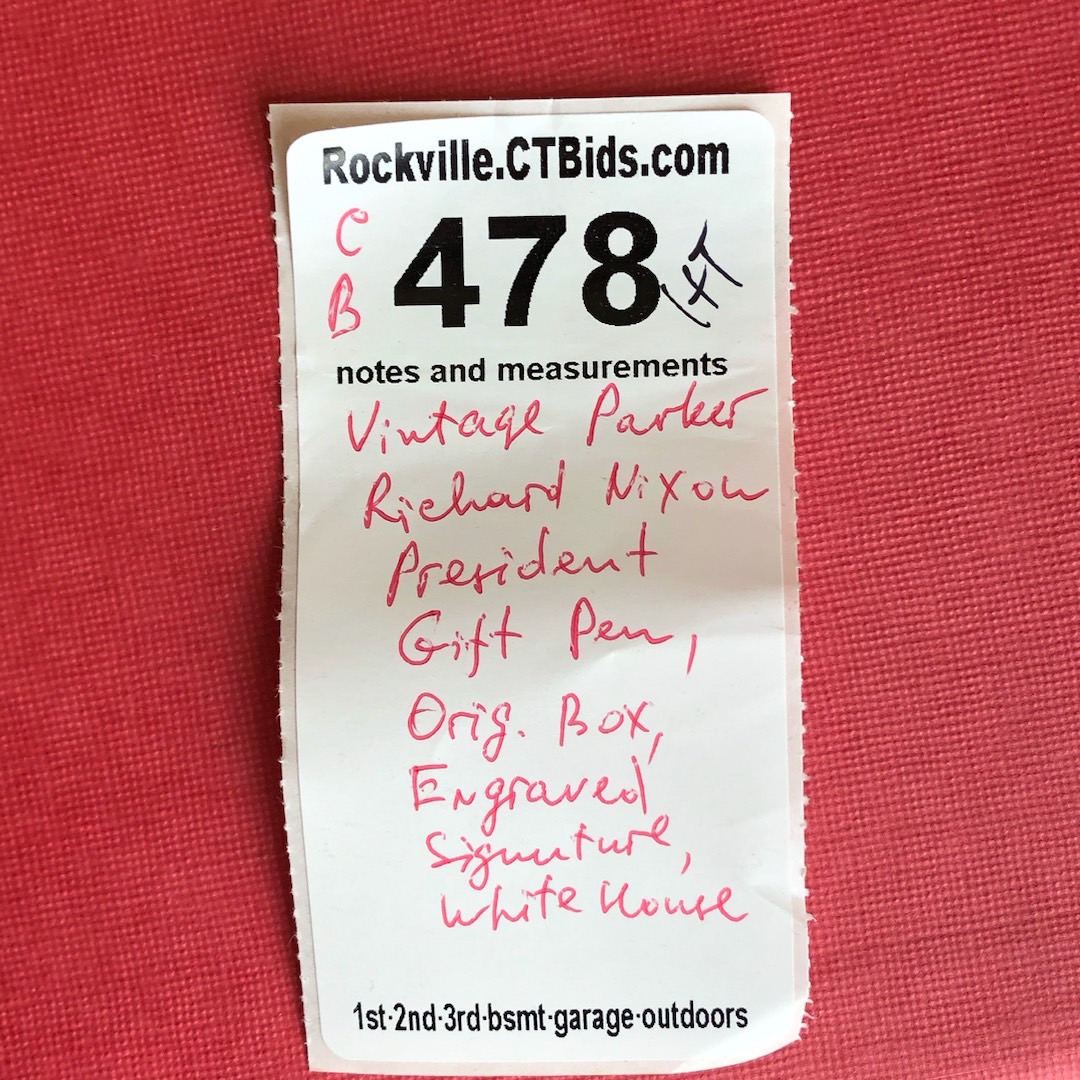 Rockville.CTBids.com
C
B
478
notes and measurements
Vintage Parker
Richard Nixon
President
Gift Pen,
Orig. Box,
Engraved
Signuture,
White House
1st·2nd·3rd·bsmt·garage·outdoors